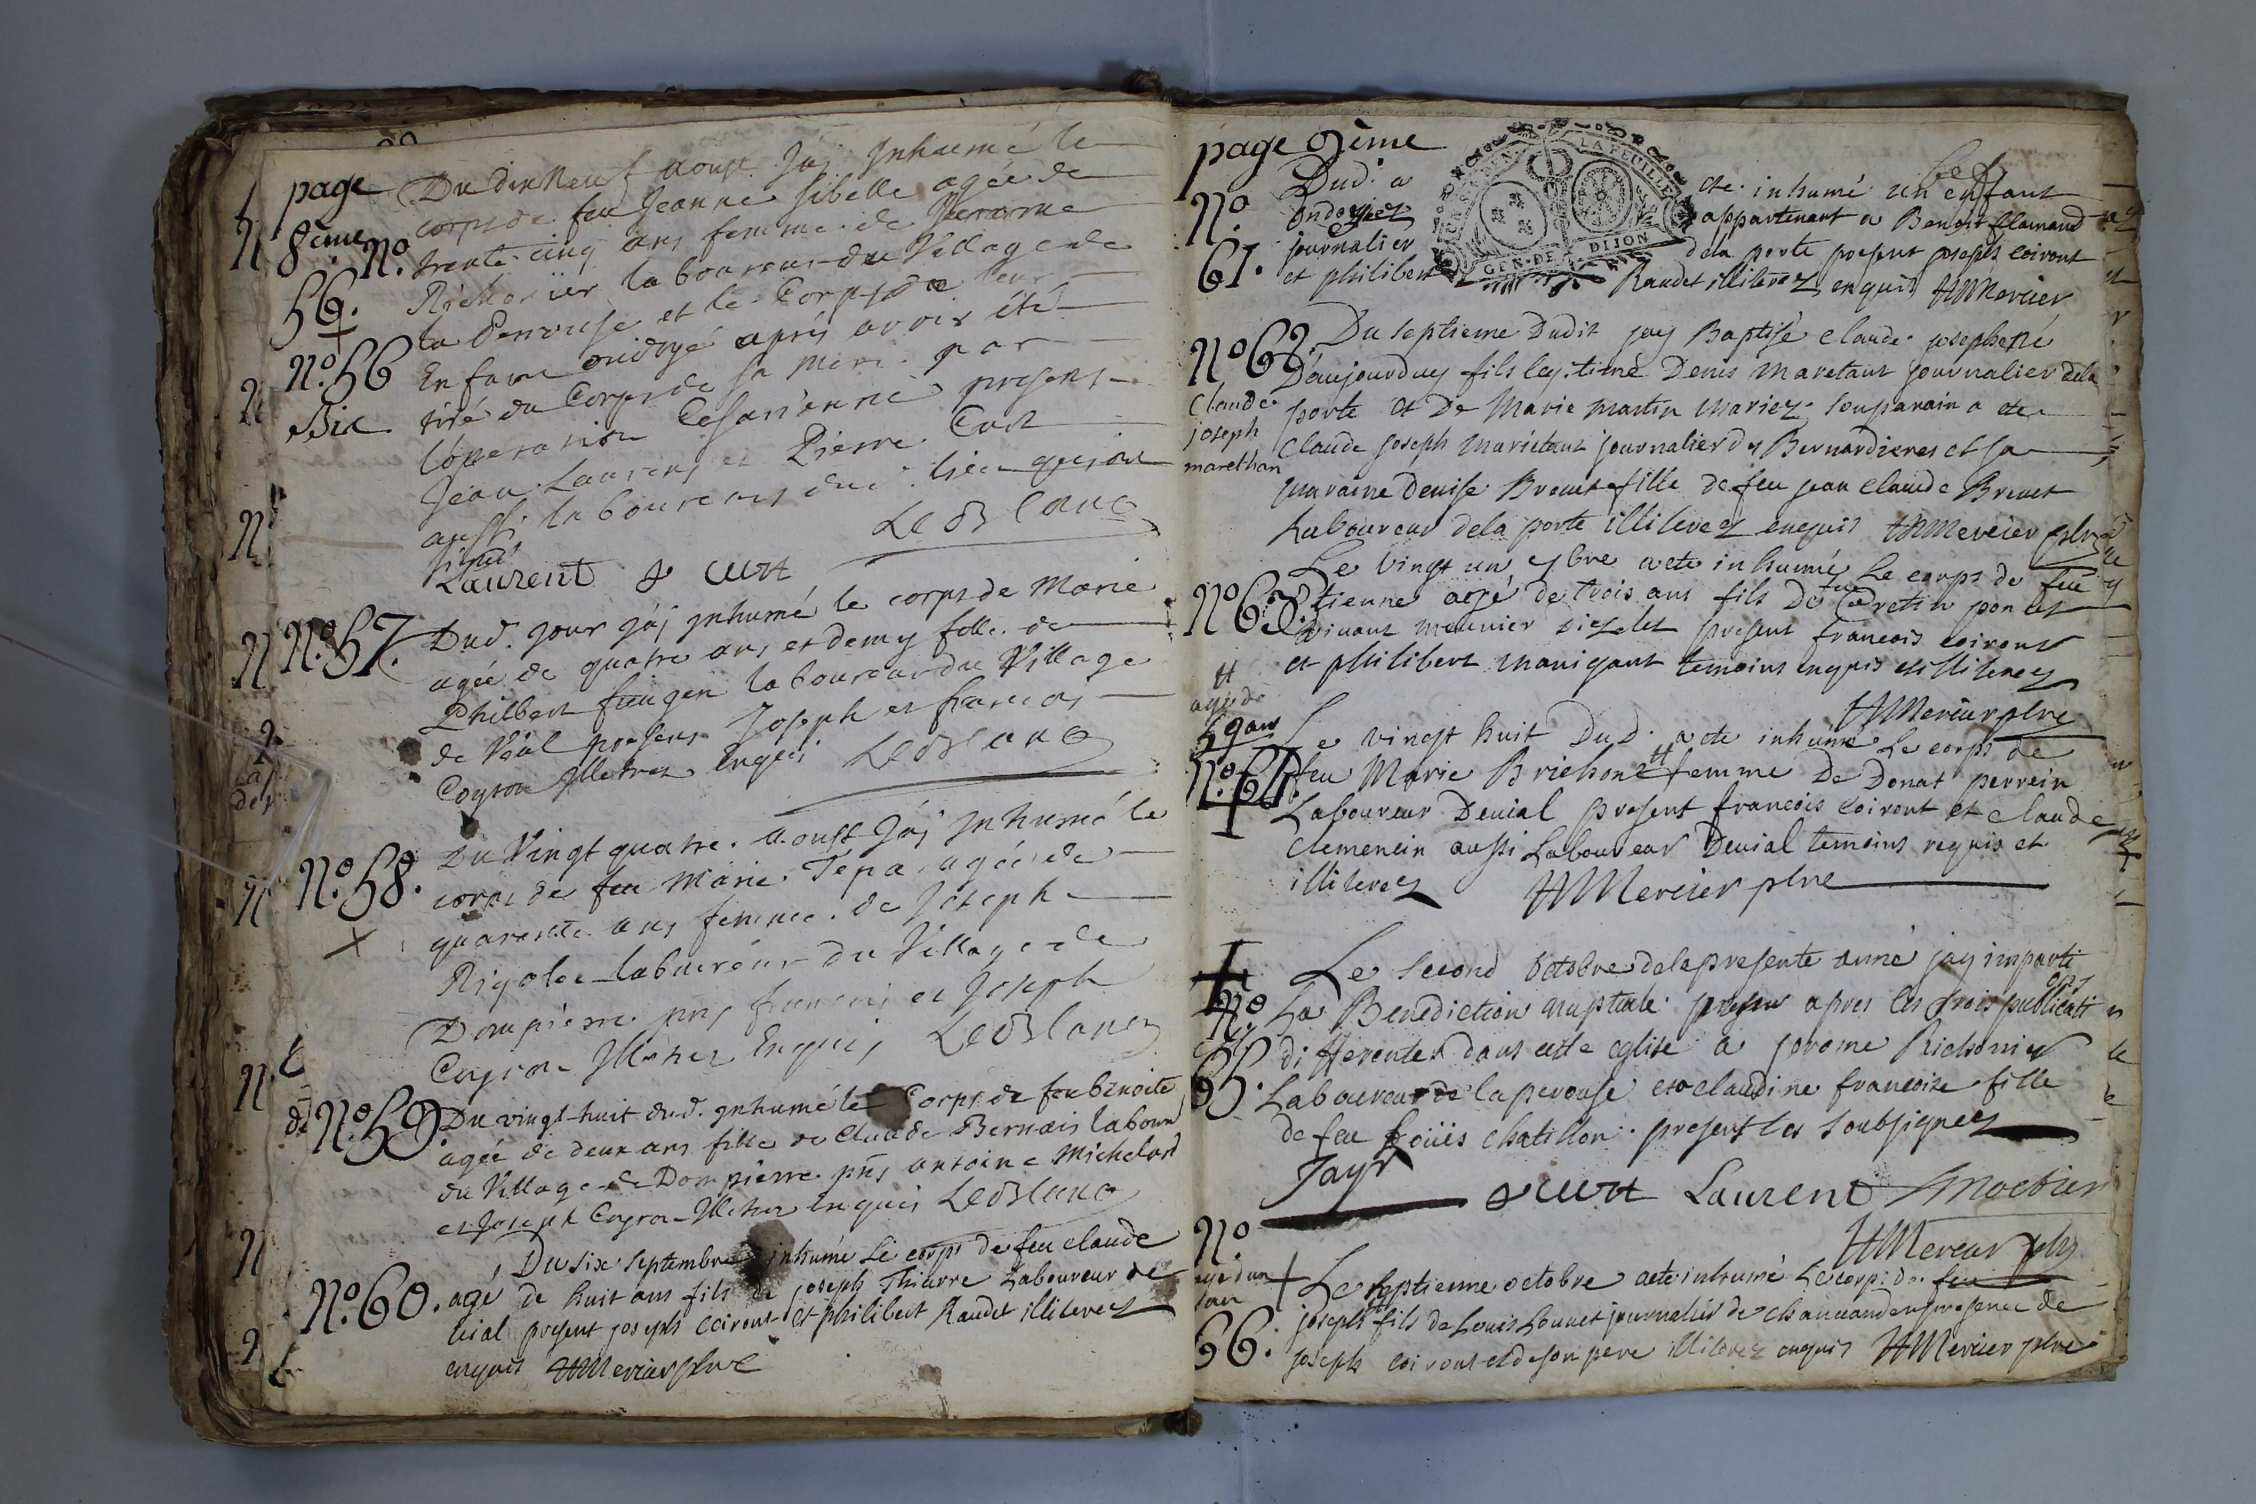 page
8ème
No.
56.
Du dix neuf aoust j'aj Inhumé le
corps de feu Jeanne sibelle agée de
trente-cinq ans femme de Jerorme
Richonier laboureur du Village de
la Perouse et le Corps de leur
No. 56
Bis
Enfant ondoyé aprés avoir été
tiré du Corps de sa mere par
l'operation Cesarienne presens
Jean Laurens et Pierre Curt
aussi laboureurs dud. lieu qui ont
signé LeBlanc
Laurent & Curt
No. 57.
Dud. jour j'aj Inhumé le corps de Marie
agée de quatre ans et demy fille de
Philbert laboureur du Village
de Vial presens Joseph et francois
Coyron Illetrez Enquis LeBlanc
No. 58.
Du Vingt quatre aoust J'aj Inhumé le
corps de feu Marie Tepa agée de
quarente ans femme de Joseph
Rigolee laboureur du Village de
Dompierre pns francois et Joseph
Coyron Illetrez Enquis LeBlanc
No. 59.
Du vingt-huit dud. Inhumé le Corps de feu benoite
agée de deux ans fille de Claude Bernais labour
du Village de Dompierre pns antoine Michelard
et Joseph Coyron Illetrez Enquis LeBlanc
No. 60.
Du six septembre inhumé Le corps de feu claude
agé de huit ans fils de joseph Thiavre Laboureur de
vial present joseph coiront et philibert Raudet illiterez
enquis HMercier ptre
page 9ème
GEN. DE DIJON
LA FEUILLE
No.
61.
Dud. a été inhumé un enfant
ondoyez appartenant a Benoit flamand
journalier dela porte present joseph coiront
et philibert Raudet illiterez enquis HMercier
No. 62.
Claude
joseph
marethan
Du septieme Dudit jay Baptisé claude joseph né
D'aujourduy fils legitime Denis maretant journalier dela
porte et De Marie martin mariez son parain a ete
claude joseph marietant journalier des Bernardieres et sa
maraine Denise Brevet fille de feu jean claude Brevet
Laboureur dela porte illiterez enquis HMercier ptre
No. 63.
Le vingt un 7bre a ete inhumé Le corps de feu
Etienne agé de trois ans fils De feu poncet
vivant meunier present francois coiront
et philibert manigant temoins enquis et illiterez
HMercier ptre
H
agée de
29 ans
No. 64.
Le vingt huit Dud. a ete inhumé Le corps de
feu Marie Brichon H femme De Donat perrein
Laboureur Deuial present francois coiront et claude
clemencin aussi Laboureur Deuial temoins requis et
illiterez HMercier ptre
No.
65.
Le second octobre dela presente anné jay imparti
La Benediction nuptiale apres les trois publicati
ons
differentes dans cette eglise a jerome Richonier
Laboureur de laperouse et a claudine francoise fille
de feu chatillon present les soubsignez
Jayr & Curt Laurent
HMercier ptre
No.
66.
agé d'un
an
Le septieme octobre a ete inhumé Le corps de feu
joseph fils de Louis Louvet journalier de en presence de
joseph coiront et de son pere illiterez enquis HMercier ptre